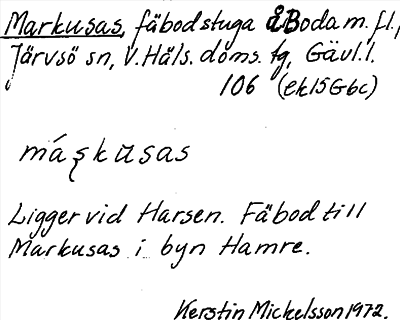 Markusas, fäbodstuga åBodam.fl.,
Järvsö sn, V.Häls.doms.fg, Gävl.l.
106 (ek15Gbc)
máʂkɯsas
Ligger vid Harsen. Fäbod till
Markusas i byn Hamre.
Kerstin Mickelsson 1972.